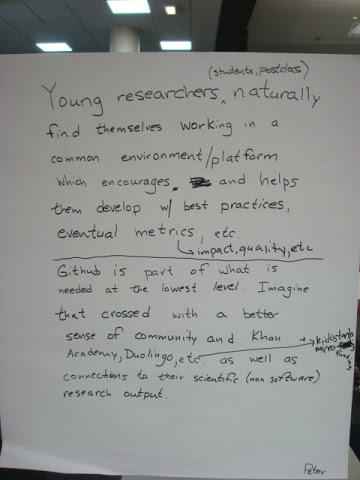 (students, postdocs)
Young researchers ^ naturally
find themselves working in a
common environment/platform
which encourages and helps
them develop w/ best practices,
eventual metrics, etc.
↳ impact, quality, etc
Github is part of what is
needed at the lowest level. Imagine
that crossed with a better
sense of community and Khan
Academy, Duolingo, etc. as well as
+ kickstarter
micro-
connections to their scientific (non software)
research output.
Peter